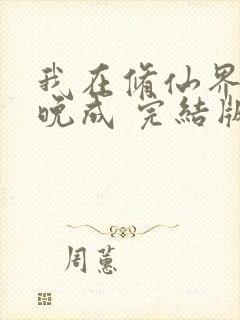 我在修仙界
晚成 完結版
周蕙